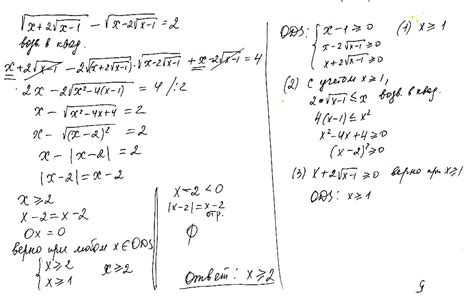 √(x+2√(x-1)) - √(x-2√(x-1)) = 2
возв. в квад.
x+2√(x-1) - 2√(x+2√(x-1)) · √(x-2√(x-1)) + x-2√(x-1) = 4
2x - 2√(x²-4(x-1)) = 4 /:2
x - √(x²-4x+4) = 2
x - √((x-2)²) = 2
x - |x-2| = 2
|x-2| = x-2
x ≥ 2
x-2 = x-2
0x = 0
верно при любом x ∈ ОДЗ
{ x ≥ 2
x ≥ 1
x ≥ 2
x-2 < 0
|x-2| = x-2
отр.
∅
Ответ: x ≥ 2
ОДЗ: { x-1 ≥ 0
x-2√(x-1) ≥ 0
x+2√(x-1) ≥ 0
(1) x ≥ 1
(2) с учетом x ≥ 1,
2·√(x-1) ≤ x возв. в квад.
4(x-1) ≤ x²
x²-4x+4 ≥ 0
(x-2)² ≥ 0
(3) x+2√(x-1) ≥ 0 верно при x ≥ 1
ОДЗ: x ≥ 1